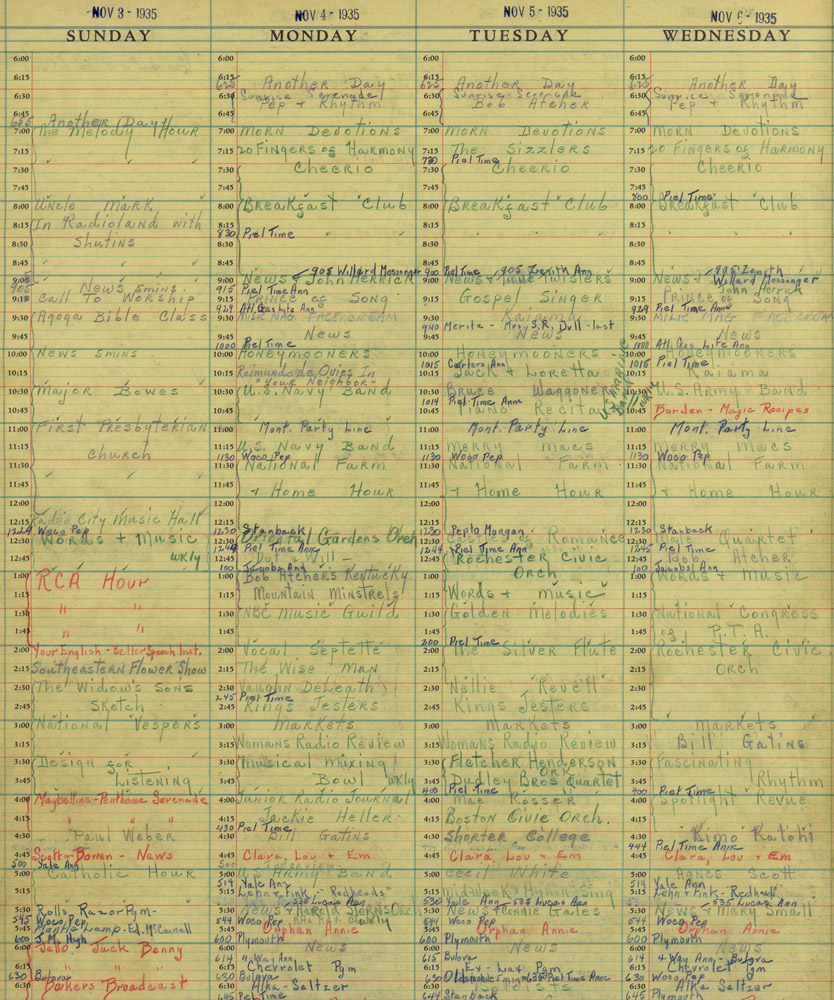 NOV 3 - 1935
SUNDAY
6:00
6:15
6:30
6:45
655 Another Day
7:00 The Melody Hour
7:15
7:30
7:45
8:00 Uncle Mark
8:15 In Radioland with
Shutins
8:30
8:45
9:00
905 News 5 mins.
9:15 Call To Worship
9:30 Agoga Bible Class
9:45
10:00 News 5 mins
10:15
10:30 Major Bowes
10:45
11:00 First Presbyterian
11:15
Church
11:30
11:45
12:00
12:15 Radio City Music Hall
1229 Woco Pep
12:30 Words + Music
12:45 wkly
1:00 RCA Hour
1:15 " "
1:30
1:45 "
2:00 Your English - Better Speech Inst.
2:15 Southeastern Flower Show
2:30 The Widow's Sons
2:45 Sketch
3:00 National Vespers
3:15
3:30 Design for
3:45 Listening
4:00 Maybelline - Penthouse Serenade
4:15
4:30 Paul Weber
4:45 Scott + Bowen - News
500 Yale Ann
5:00 Catholic Hour
5:15
5:30 Rolls Razor Pgm -
545 Woco Pep
5:45 Mantle Lamp - Ed. McConnell
600 J. Mc Hugh
6:00 Jello - Jack Benny
6:15 " "
630 Bulova
6:30 Bakers Broadcast
NOV 4 - 1935
MONDAY
6:00
6:15
625 Another Day
6:30 Sunrise Serenade
Pep + Rhythm
6:45
7:00 Morn Devotions
7:15 20 Fingers of Harmony
7:30 Cheerio
7:45
8:00 Breakfast Club
8:15
830 Piel Time
8:30
8:45
905 Willard Messenger
9:00 News + John Herrick
915 Piel Time Ann
9:15 Prince of Song
929 Atl. Gas Lyte Ann
9:30 Milk Mag. Face Cream
9:45 News
1000 Piel Time
10:00 Honeymooners
10:15 Raimundo de Ovies In
"Your Neighbor"
10:30 U.S. Navy Band
10:45
11:00 Mont. Party Line
11:15 U.S. Navy Band
1130 Woco Pep
11:30 National Farm
11:45 + Home Hour
12:00
12:15
1230 Stanback
12:30 Oriental Gardens Orch
1244 Piel Time Ann
12:45 Dot + Will
100 Jacobs Ann
1:00 Bob Atcher's Kentucky
1:15 Mountain Minstrels
1:30 NBC Music Guild
1:45
2:00 Vocal Septette
2:15 The Wise Man
2:30 Vaughn DeLeath
245 Piel Time
2:45 Kings Jesters
3:00 Markets
3:15 Womans Radio Review
3:30 Musical Mixing
3:45 Bowl wkly
4:00 Junior Radio Journal
4:15 Jackie Heller
430 Piel Time
4:30 Bill Gatins
4:45 Clara, Lou + Em
5:00 U.S. Army Band
514 Yale Ann
5:15 Lehn + Fink - "Redheads"
535 Lucas Ann
5:30 News + Harold Sterns Orch
544 Woco Pep
5:45 Orphan Annie
600 Plymouth
6:00 News
614 4-Way Ann
6:15 Chevrolet Pgm
630 Bulova
6:30 Alka-Seltzer
645 Piel Time
NOV 5 - 1935
TUESDAY
6:00
6:15
625 Another Day
6:30 Sunrise Serenade
Bob Atcher
6:45
7:00 Morn Devotions
7:15 The Sizzlers
730 Piel Time
7:30 Cheerio
7:45
8:00 Breakfast Club
8:15
8:30
8:45
900 Piel Time 905 Zenith Ann
9:00 News
9:15 Gospel Singer
9:30 Kaiama
940 Merita - Mrs. S.R. Dull - last
9:45 News
10:00 Honeymooners
1015 Carters Ann
10:15 Jack + Loretta
10:30 Bruce Waggoner
1044 Piel Time Anne
10:45 Piano Recital
11:00 Mont. Party Line
11:15 Merry Macs
1130 Woco Pep
11:30 National Farm
11:45 + Home Hour
12:00
12:15
1230 Pepto Mangan
12:30 Castles of Romance
1244 Piel Time Ann
12:45 Rochester Civic
1:00 Orch
1:15 Words + Music
1:30 Golden Melodies
1:45
200 Piel Time
2:00 The Silver Flute
2:15
2:30 Nellie Revell
2:45 Kings Jesters
3:00 Markets
3:15 Womans Radio Review
3:30 Fletcher Henderson
Ork
3:45 Dudley Bros Quartet
400 Piel Time
4:00 Mae Rosser
4:15 Boston Civic Orch.
4:30 Shorter College
4:45 Clara, Lou + Em
5:00 Cecil White
5:15 Midweek Hymn Sing
530 Yale Ann 535 Lucas Ann
5:30 News + Ronnie Gales
544 Woco Pep
5:45 Orphan Annie
600 Plymouth
6:00 News
615 Bulova
6:15 Ex-Lax Pgm
630 Oldsmobile 5 min 635 Piel Time Anne
6:30
644 Stanback
NOV 6 - 1935
WEDNESDAY
6:00
6:15
625 Another Day
6:30 Sunrise Serenade
Pep + Rhythm
6:45
7:00 Morn Devotions
7:15 20 Fingers of Harmony
7:30 Cheerio
7:45
800 Piel Time
8:00 Breakfast Club
8:15
8:30
8:45
905 Zenith
Willard Messenger
9:00 News + John Herrick
9:15 Prince of Song
929 Piel Time Anne
9:30 Milk Mag. Face Cream
9:45 News
1000 Atl. Gas Lite Ann
10:00 Honeymooners
1015 Piel Time
10:15 Kaiama
10:30 U.S. Army Band
10:45 Borden - Magic Recipes
11:00 Mont. Party Line
11:15 Merry Macs
1130 Woco Pep
11:30 National Farm
11:45 + Home Hour
12:00
12:15
1230 Stanback
12:30 Quartet
1245 Piel Time
12:45 Bob Atcher
100 Jacobs Ann
1:00 Words + Music
1:15
1:30 National Congress
1:45 of P.T.A.
2:00 Rochester Civic
2:15 Orch
2:30
2:45
3:00 Markets
3:15 Bill Gatins
3:30 Fascinating
3:45 Rhythm
400 Piel Time
4:00 Spotlight Revue
4:15
4:30 Kimo Kalohi
444 Piel Time Anne
4:45 Clara, Lou + Em
5:00 Agnes Scott
514 Yale Ann
5:15 Lehn + Fink - "Redhead"
535 Lucas Ann
5:30 News + Mary Small
544 Woco Pep
5:45 Orphan Annie
600 Plymouth
6:00 News
614 4 Way Ann - Bulova
6:15 Chevrolet Pgm
630 Woco Pep
6:30 Alka Seltzer
645 Plymouth